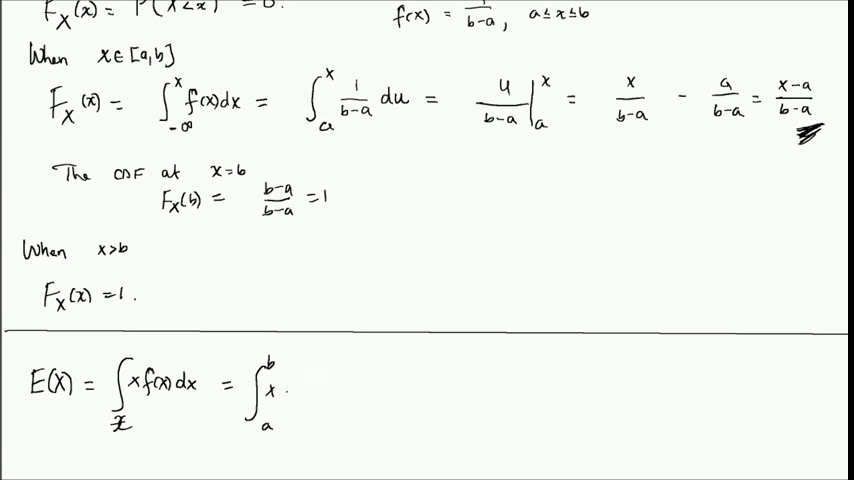 F_X(x) = P(X<x) = 0.
f(x) = 1/(b-a), a ≤ x ≤ b
When x ∈ [a,b]
F_X(x) = ∫_{-∞}^{x} f(x)dx = ∫_{a}^{x} 1/(b-a) du = u/(b-a) |_{a}^{x} = x/(b-a) - a/(b-a) = (x-a)/(b-a)
The CDF at x=b
F_X(b) = (b-a)/(b-a) = 1
When x>b
F_X(x) = 1.
E(X) = ∫_x x f(x) dx = ∫_{a}^{b} x .